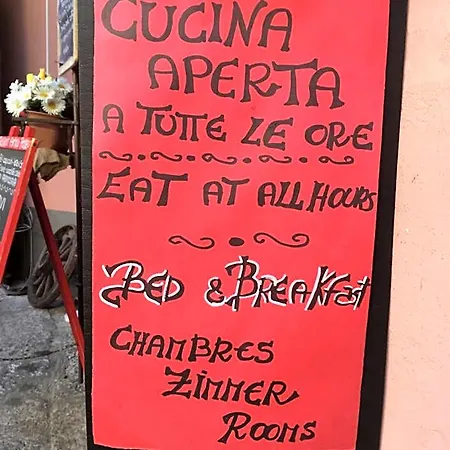 CUCINA
APERTA
A TUTTE LE ORE
EAT AT ALL HOURS
BED & BREAKFAST
CHAMBRES
ZIMMER
ROOMS